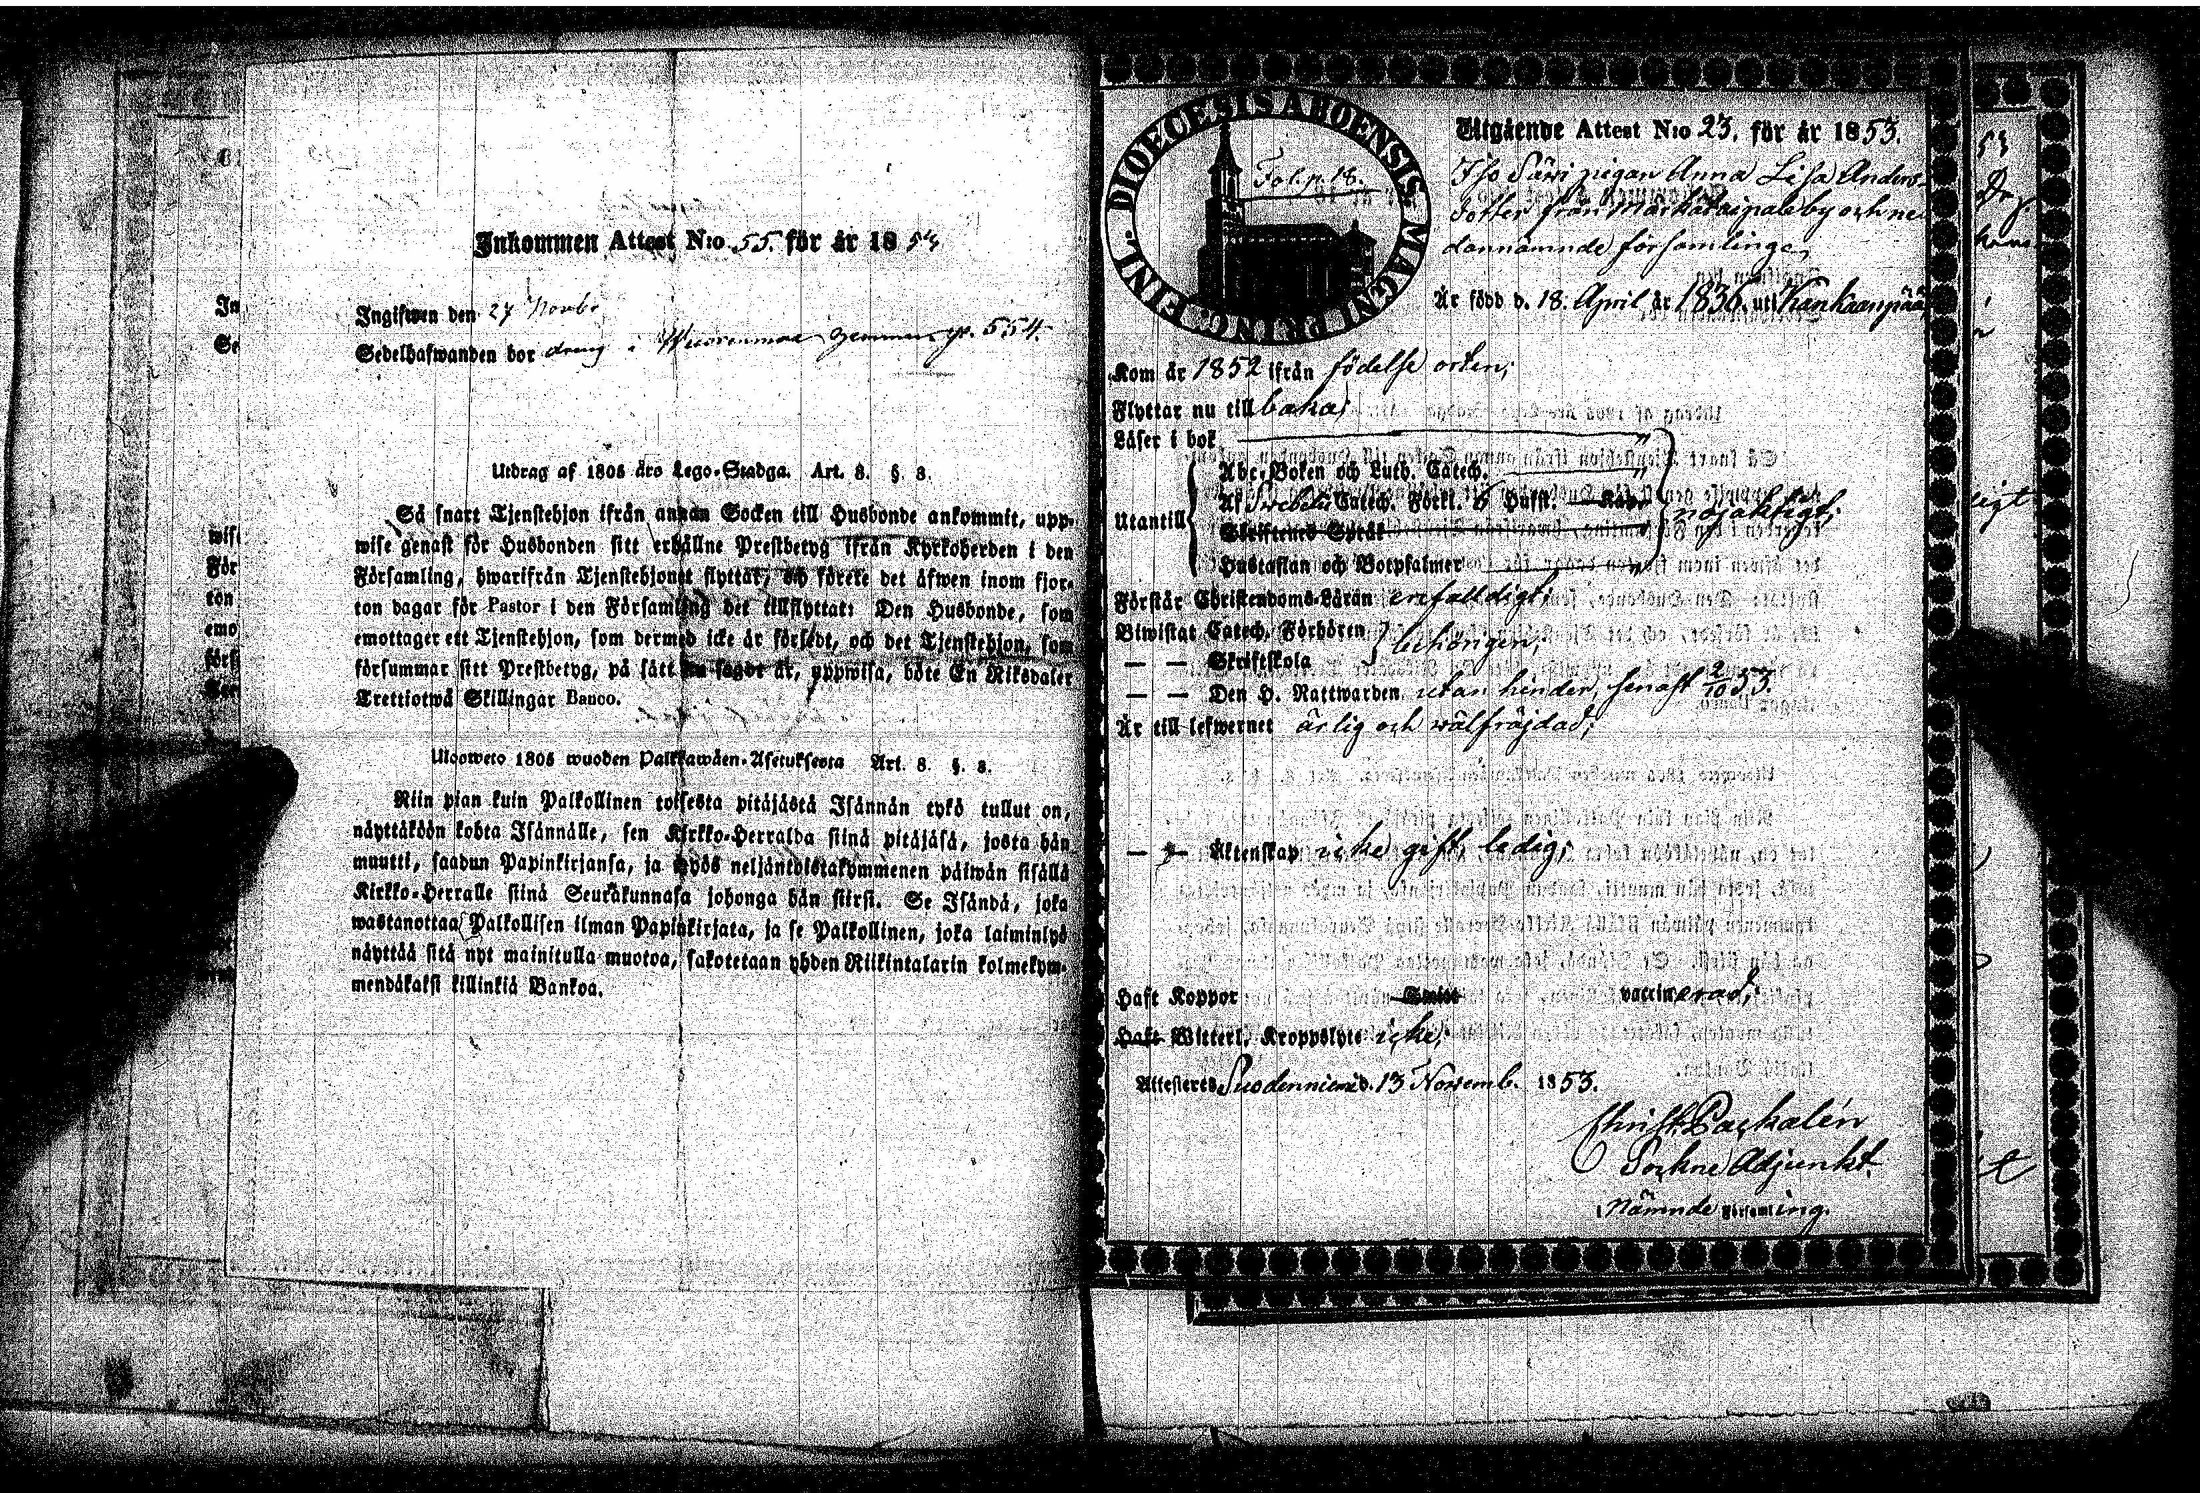 Inkommen Attest N:o 55. för år 1854
Ingifwen den 27 Novbr
Sedelhafwanden bor dreng i p. 554.
Utdrag af 1805 års Lego-Stadga. Art. 8. §. 8.
Så snart Tjenstehjon ifrån annan Socken till Husbonde ankommit, upp-
wise genast för Husbonden sitt erhållne Prestbetyg ifrån Kyrkoherden i den
Församling, hwarifrån Tjenstehjonet flyttar, och förete det äfwen inom fjor-
ton dagar för Pastor i den Församling det tillflyttat: Den Husbonde, som
emottager ett Tjenstehjon, som dermed icke är försedt, och det Tjenstehjon, som
försummar sitt Prestbetyg, på sätt nu sagdt är, uppwisa, böte En Riksdaler
Trettiotwå Skillingar Banco.
Ulosweto 1805 wuoden Palkkawäen-Asetuksesta Art. 8. §. 8.
Niin pian kuin Palkollinen toisesta pitäjästä Isännän tykö tullut on,
näyttäköön kohta Isännälle, sen Kirkko-Herralda siinä pitäjäsä, josta hän
muutti, saadun Papinkirjansa, ja myös neljäntoistakymmenen päiwän sisällä
Kirkko-Herralle siinä Seurakunnasa johonga hän siirsi. Se Isändä, joka
wastanottaa Palkollisen ilman Papinkirjata, ja se Palkollinen, joka laiminlyö
näyttää sitä nyt mainitulla muotoa, sakotetaan yhden Riikintalarin kolmekym-
mendäkaksi killinkiä Bankoa.
FINL. DIOECESIS ABOENSIS. MAGNI PRINC.
Fol. p. 18.
Utgående Attest N:o 23. för år 1853.
Iso Säri pigan Anna Lisa Anders-
dotter från by och ne-
dannämnde församling,
Är född d. 18. April år 1836. uti Kankaanpää
Kom år 1852 ifrån födelse orten;
Flyttar nu till baka;
Läser i bok "
Utantill
Abc-Boken och Luth. Catech. "
Af Svebelii Catech. Förkl. 6 Hufst. Kap.
Skriftenes Språk
nöjaktigt;
Hustaflan och Botpsalmer "
Förstår Christendoms-Läran enfaldigt;
Biwistat Catech. Förhören
— — Skriftskola
behörigen;
— — Den H. Nattwarden utan hinder, senast 2/10 53.
Är till lefwernet ärlig och wälfrejdad;
— — Äktenskap icke gift, ledig;
Haft Koppor Smitt vaccinerad;
Haft Witterl. Kroppslyte icke;
Attesteres Suodenniemi d. 13 Novemb. 1853.
Christ. Packalén
Sockne Adjunkt
i Nämnde Församling.